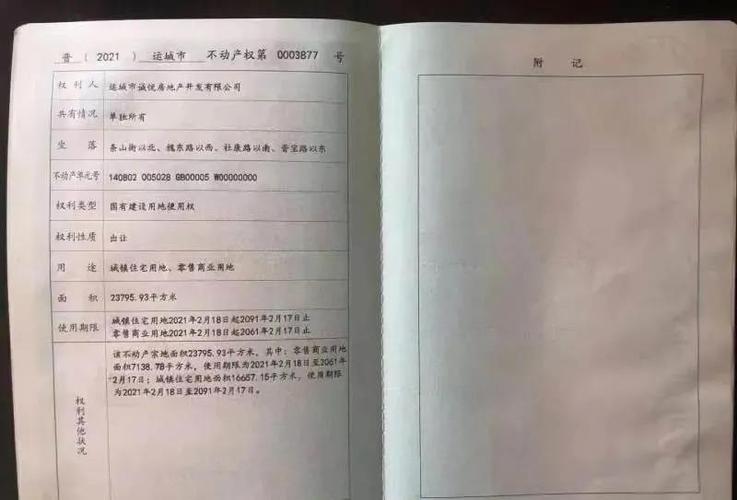 晋（2021）运城市 不动产权第 0003877 号
权利人 运城市诚悦房地产开发有限公司
共有情况 单独所有
坐落 条山街以北、魏东路以西、社康路以南、晋宝路以东
不动产单元号 140802 005028 GB00005 W00000000
权利类型 国有建设用地使用权
权利性质 出让
用途 城镇住宅用地、零售商业用地
面积 23795.93平方米
使用期限 城镇住宅用地2021年2月18日起2091年2月17日止
零售商业用地2021年2月18日起2061年2月17日止
权利其他状况
该不动产宗地面积23795.93平方米，其中：零售商业用地
面积7138.78平方米，使用期限为2021年2月18日至2061年
2月17日；城镇住宅用地面积16657.15平方米，使用期限
为2021年2月18日至2091年2月17日。
附记